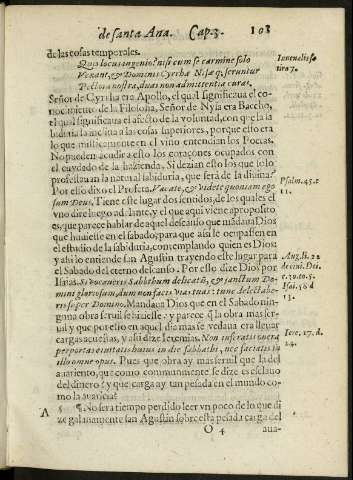 de santa Ana. Cap. 3. 108
de las cosas temporales.
Quis locus ingenio? nisi cum se carmine solo
Vexant, & Dominis Cyrrhæ Nisæq; feruntur
Pectora nostra, duas non admittentia curas.
Iuuenalis sa
tira 7.
Señor de Cyrrha era Apolo, el qual significaua el co-
nocimiento de la Filosofia, Señor de Nysa era Baccho,
el qual significaua el afecto de la voluntad, con que la sa
biduria la inclina a las cosas superiores, porque esto era
lo que misticamente en el vino entendian los Poetas.
No pueden acudir a esto los coraçones ocupados con
el cuydado de la hazienda. Si dezian esto los que solo
professauan la natural sabiduria, que será de la diuina?
Por esso dixo el Profeta. Vacate, & videte quoniam ego
sum Deus. Tiene este lugar dos sentidos, de los quales el
Psalm. 45. c
11.
vno dire luego adelante, y el que aqui viene a proposito
es, que parece hablar de aquel descanso que mãdaua Dios
que huuiesse en el sabado, para que assi se ocupassen en
el estudio de la sabiduria, contemplando quien es Dios
y assi lo entiende san Agustin trayendo este lugar para
el Sabado del eterno descanso. Por esso dize Dios por
Isaias. Si vocaueris Sabbathum delicatũ, & sanctum Do-
mini gloriosum, dum non facis vias tuas: tunc delectabe-
ris super Domino. Mandaua Dios que en el Sabado nin-
Aug. li. 22
de ciui. Dei.
c. 30. to. 5.
Isai. 58 d
13.
guna obra seruil se hiziesse: y parece q̃ la obra mas ser-
uil y que por esso en aquel dia mas se vedaua era lleuar
cargas acuestas, y assi dize Ieremias. Non inferatis onera
per portas ciuitatis huius in die sabbathi, nec faciatis in
illo omne opus. Pues que obra ay mas seruil que la del
Iere. 17. d.
24.
auariento, que como communmente se dize es esclauo
del dinero? y que carga ay tan pesada en el mundo co-
mo la auaricia?
A 5 ¶ No sera tiempo perdido leer vn poco de lo que di
ze galanamente san Agustin sobre esta pesada carga del
O 4 aua-